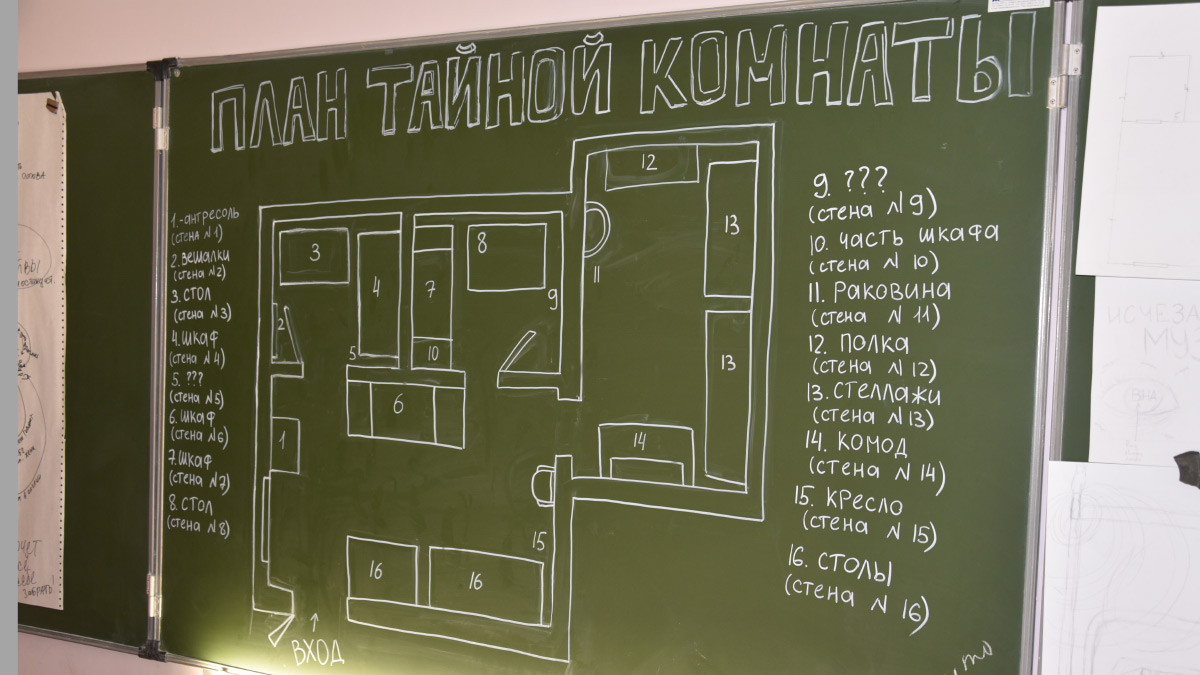 ПЛАН ТАЙНОЙ КОМНАТЫ
1.-антресоль
(стена №1)
2. вешалки
(стена №2)
3. стол
(стена №3)
4. шкаф
(стена №4)
5. ???
(стена №5)
6. шкаф
(стена №6)
7. шкаф
(стена №7)
8. стол
(стена №8)
9. ???
(стена №9)
10. часть шкафа
(стена № 10)
11. раковина
(стена № 11)
12. полка
(стена №12)
13. стеллажи
(стена №13)
14. комод
(стена № 14)
15. кресло
(стена № 15)
16. столы
(стена № 16)
12
13
3
8
4
7
11
9
2
5
10
13
6
1
14
15
16
16
ВХОД
ИСЧЕЗА
МУЗ